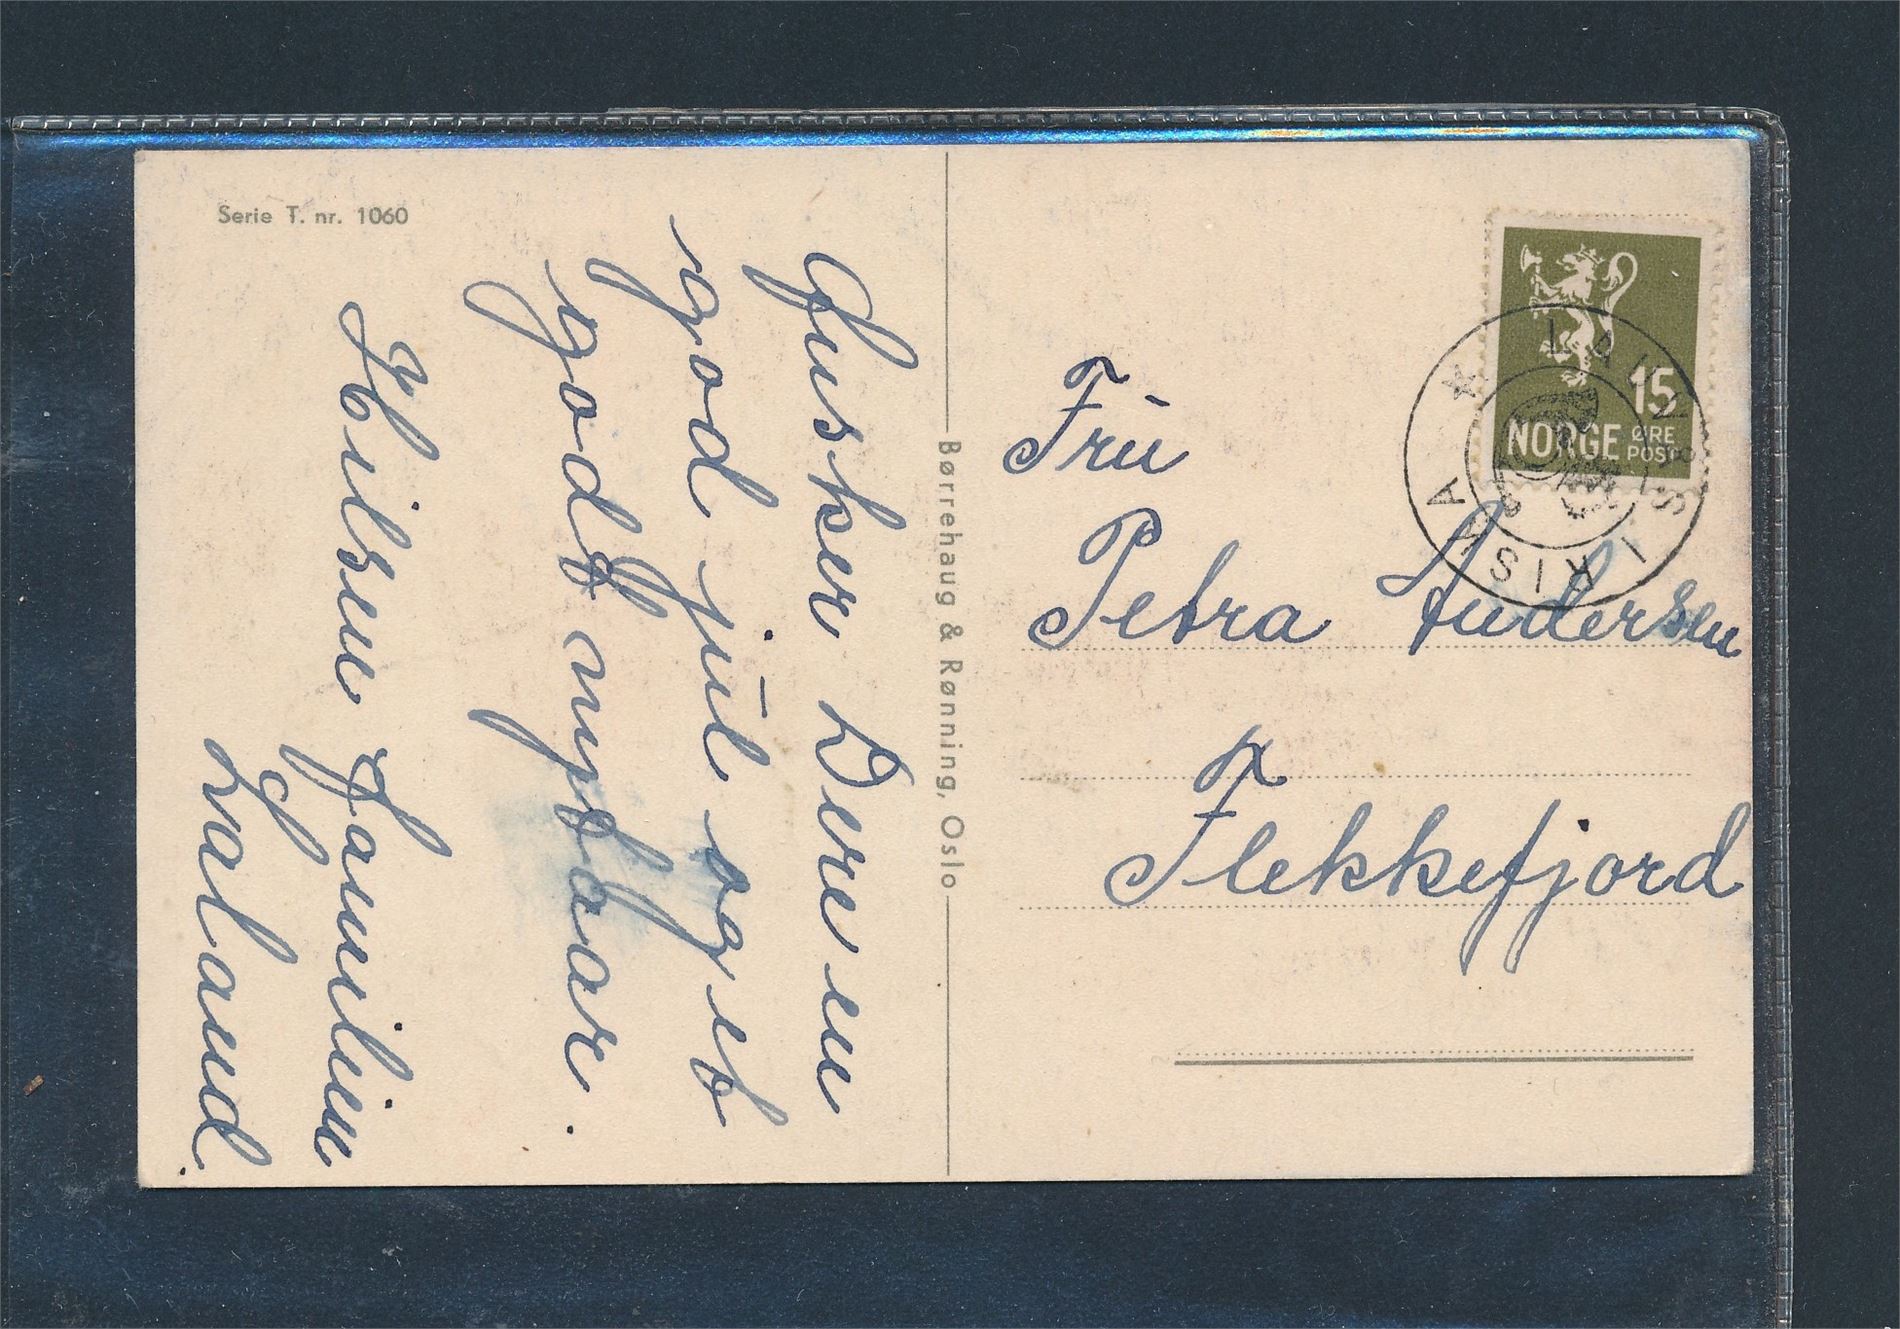 Serie T. nr. 1060
Ønsker Dere en
god jul og et
godt nyttaar.
Hilsen familien
Laland.
Børrehaug & Rønning, Oslo
15
NORGE ØRE
POST
Frü
Petra Andersen
Flekkefjord